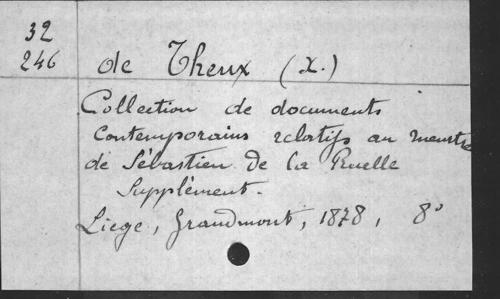 32
246
de Theux (X.)
Collection de documents
contemporains relatifs au meurtre
de Sébastien de la Ruelle
Supplément.
Liege, Grandmont, 1878, 8°